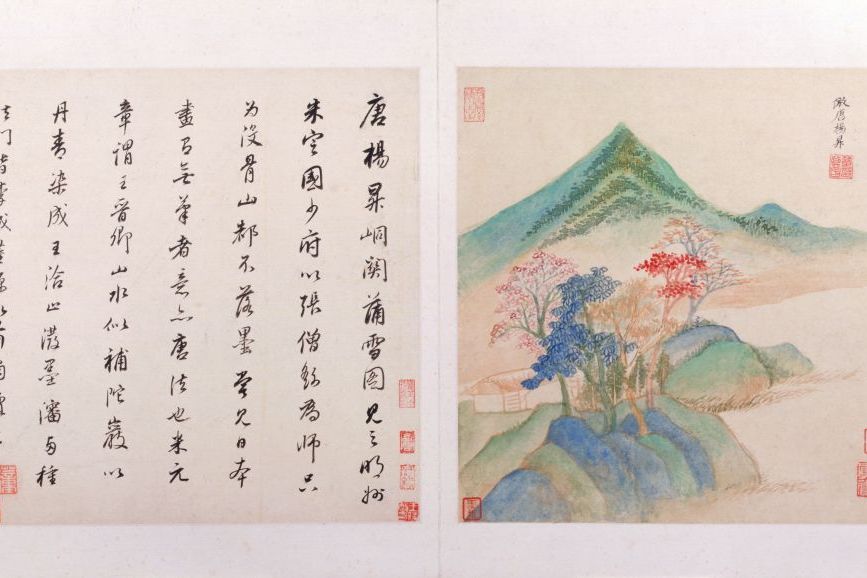 倣唐楊昇
唐楊昇峒關蒲雪圖見之明州
朱定國少府以張僧繇為師只
为沒骨山都不落墨嘗見日本
畫有無筆者意亦唐法也米元
章謂王晉卿山水似補陀巖以
丹青染成王洽止潑墨瀋種
門皆李成董源